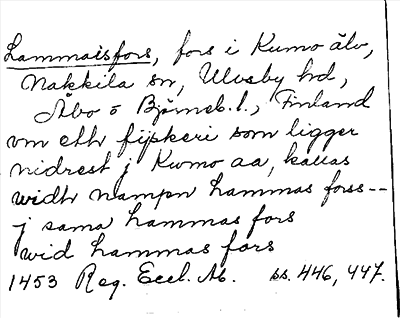 Lammaisfors, fors i Kumo älv,
Nakkila sn, Ulvsby hd,
Åbo o Björneb. l., Finland
vm eth fijskeri som ligger
nidrest j Kwmo aa, kallas
widh nampn hammas forss--
j sama hammas fors
wid hammas fors
1453 Reg. Eccl. Ab. ss. 446, 447.